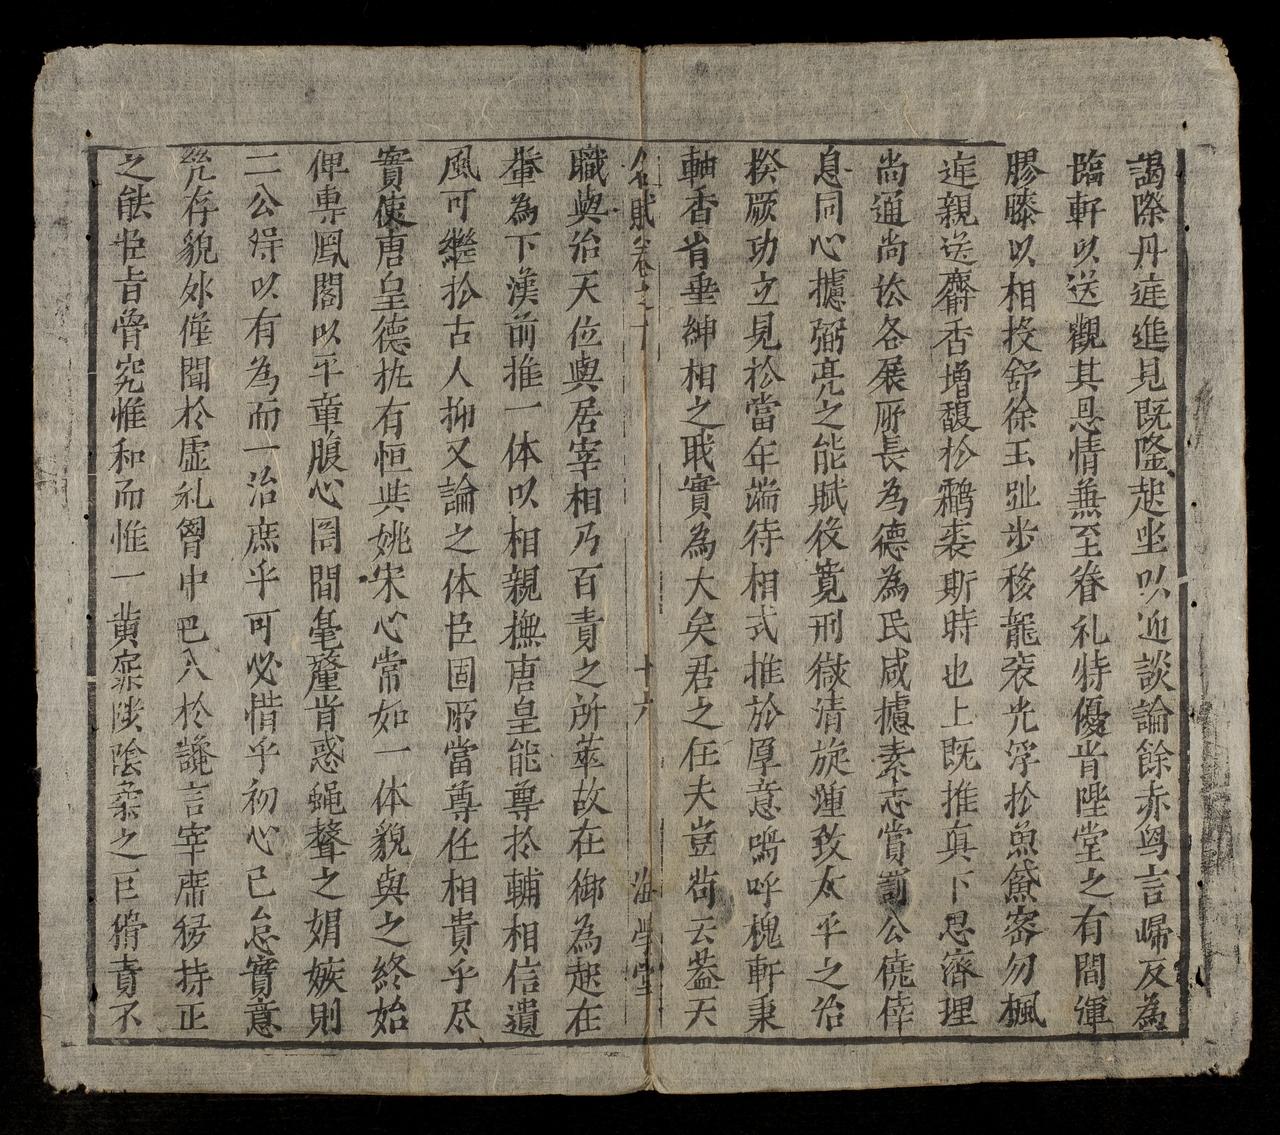 謁際丹𨓏進見既隆起坐以迎談論餘赤舃言㱕反為
臨軒以送觀其恩情兼至眷礼特優肯陛堂之有間渾
膠膝以相投舒徐玉趾步移龍衮光浮於魚黛宻勿楓
𨓏親送齋香增馥於鸘裘斯時也上既推真下思濟理
尚通尚泫各展所長為德為民咸攄素志賞罰公僥倖
息同心攄弼亮之能賦役寬刑嶽清旋運致太平之治
揆厥功之見於當年端待相式推於厚意嗚呼槐軒秉
軸香肯垂紳相之職實為大矣君之任夫豈苟云葢天
名賦卷之十 十六 海學堂
職與治天位與居宰相乃百責之所萃故在御為起在
輦為下漢前推一体以相親撫唐皇能尊於輔相信遺
風可継於古人抑又論之体臣固所當尊任相貴乎尽
實使唐皇德㧞有恒其姚宋心常如一体貌與之終始
俾專鳳閣以平章腹心罔間毫釐肯惑蝇聲之媢嫉則
二公得以有為而一治庶乎可必惜乎初心已怠實意
𠒋存貌外僅聞於虚礼胷中巴入於讒言宰席終持正
之能臣肯骨究惟和而惟一黄霖陰柔之巨猾責不